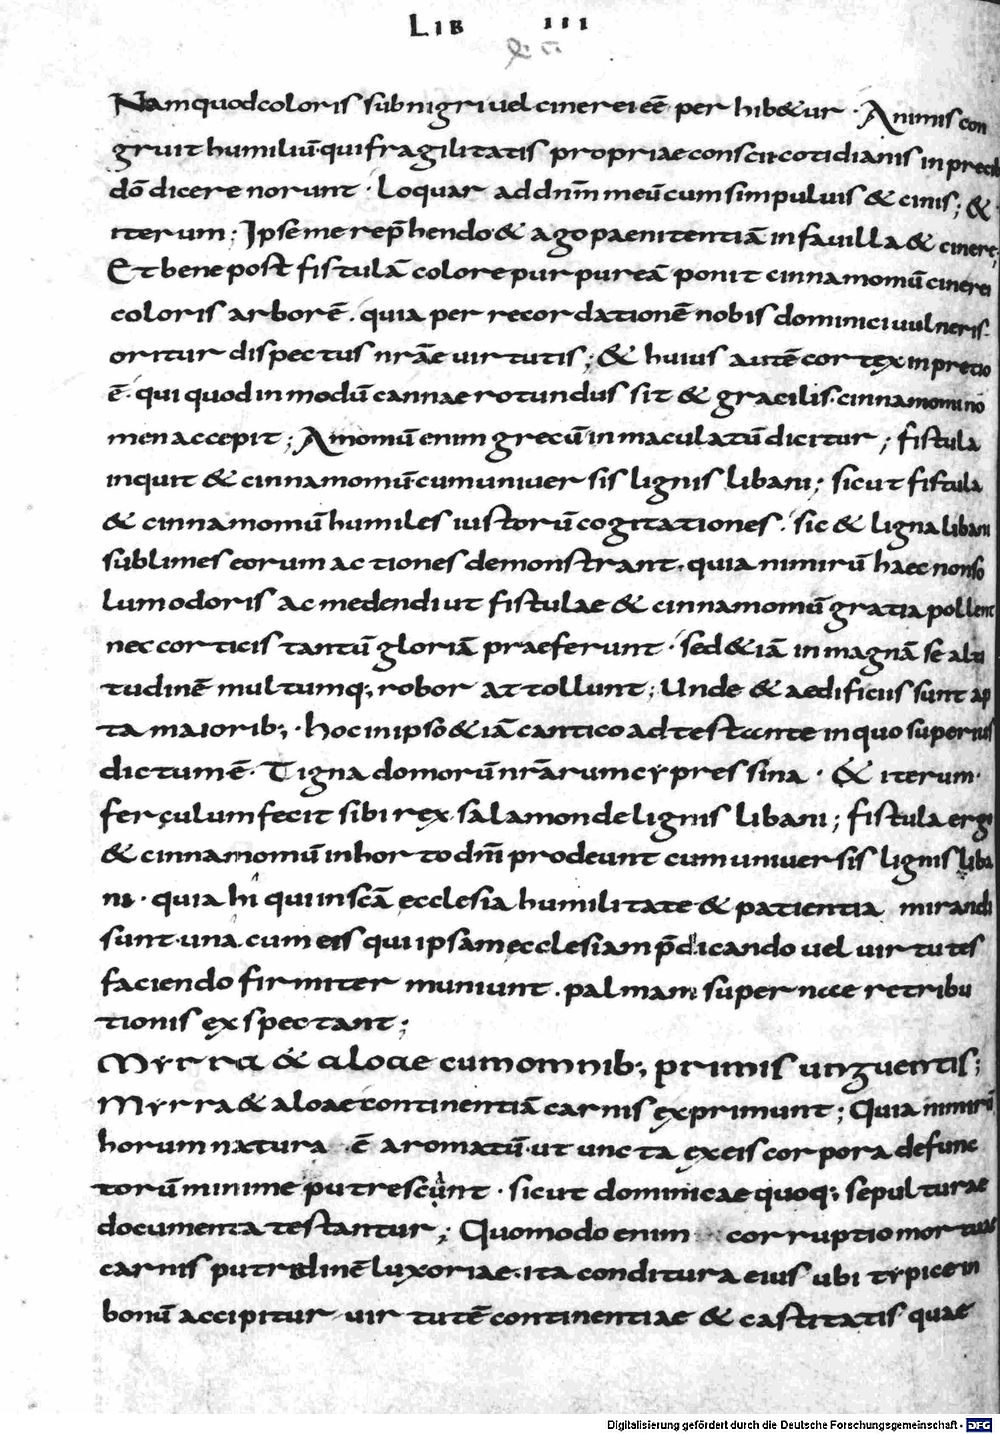 LIB III
Nam quod coloris subnigri vel cinerei eē perhib&ur · Animis con
gruit humiliū· qui fragilitatis propriae conscii cotidianis in precib
dō dicere norunt · Loquar ad dnm̄ meū cum sim pulvis & cinis; &
iterum; Ipse me rep̄hendo & ago paenitentiā in favilla & cinere;
Et bene post fistulā colore purpureā ponit cinnamomū cinerei
coloris arborē. quia per recordationē nobis dominici vulneris
oritur dispectus nrāe virtutis; & huius autē cortex in pretio
ē· qui quod in modū cannae rotundus sit & gracilis· cinnamomi no
men accepit; Amomū enim grecū inmaculatū dicitur; fistula
inquit & cinnamomū cum universis lignis libani; sicut fistula
& cinnamomū humiles iustorū cogitationes. sic & ligna libani
sublimes eorum actiones demonstrant. quia nimirū haec non so
lum odoris ac medendi ut fistulae & cinnamomū gratia pollent
nec corticis tantū gloriā praeferunt · sed &iā in magnā se alti
tudinē multumq; robor attollunt; Unde & aedificiis sunt ap
ta maiorib; · hoc in ipso &iā cantico adtestante in quo superius
dictum ē· Tigna domorū nrārum cypressina · & iterum·
ferculum fecit sibi rex salamon de lignis libani; fistula ergo
& cinnamomū in horto dnī prodeunt cum universis lignis liba
ni · quia hi qui in scā ecclesia humilitate & patientia mirandi
sunt· una cum eis qui ipsam ecclesiam p̄dicando vel virtutes
faciendo firmiter muniunt. palmam supernae retribu
tionis exspectant;
Myrra & aloae cum omnib; primis unguentis;
Myrra & aloae continentiā carnis exprimunt; Quia nimirū
horum natura ē aromatū· ut uncta ex eis corpora defunc
torū minime putrescunt · sicut dominicae quoq; sepulturae
documenta testantur; Quomodo enim corruptio mortuae
carnis putredinē luxoriae· ita conditura eius ubi typice in
bonū accipitur virtutē continentiae & castitatis quae
Digitalisierung gefördert durch die Deutsche Forschungsgemeinschaft - DFG